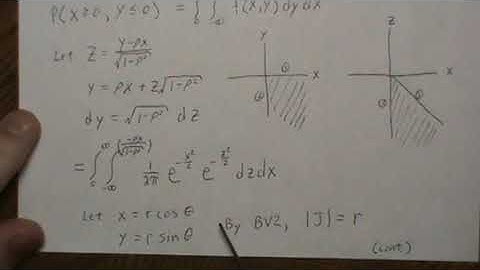 P(X≥0, Y≤0) = ∫∫ f(x,y) dy dx
Let Z = (Y-ρX)/√(1-ρ²)
y = ρx + z√(1-ρ²)
dy = √(1-ρ²) dz
Y
X
⊕
⊕
Z
X
⊕
= ∫₀^∞ ∫_{-∞}^{(-ρx/√(1-ρ²))} 1/2π e^{-x²/2} e^{-z²/2} dz dx
Let x = r cos θ
y = r sin θ
By BV2, |J| = r
(cont)